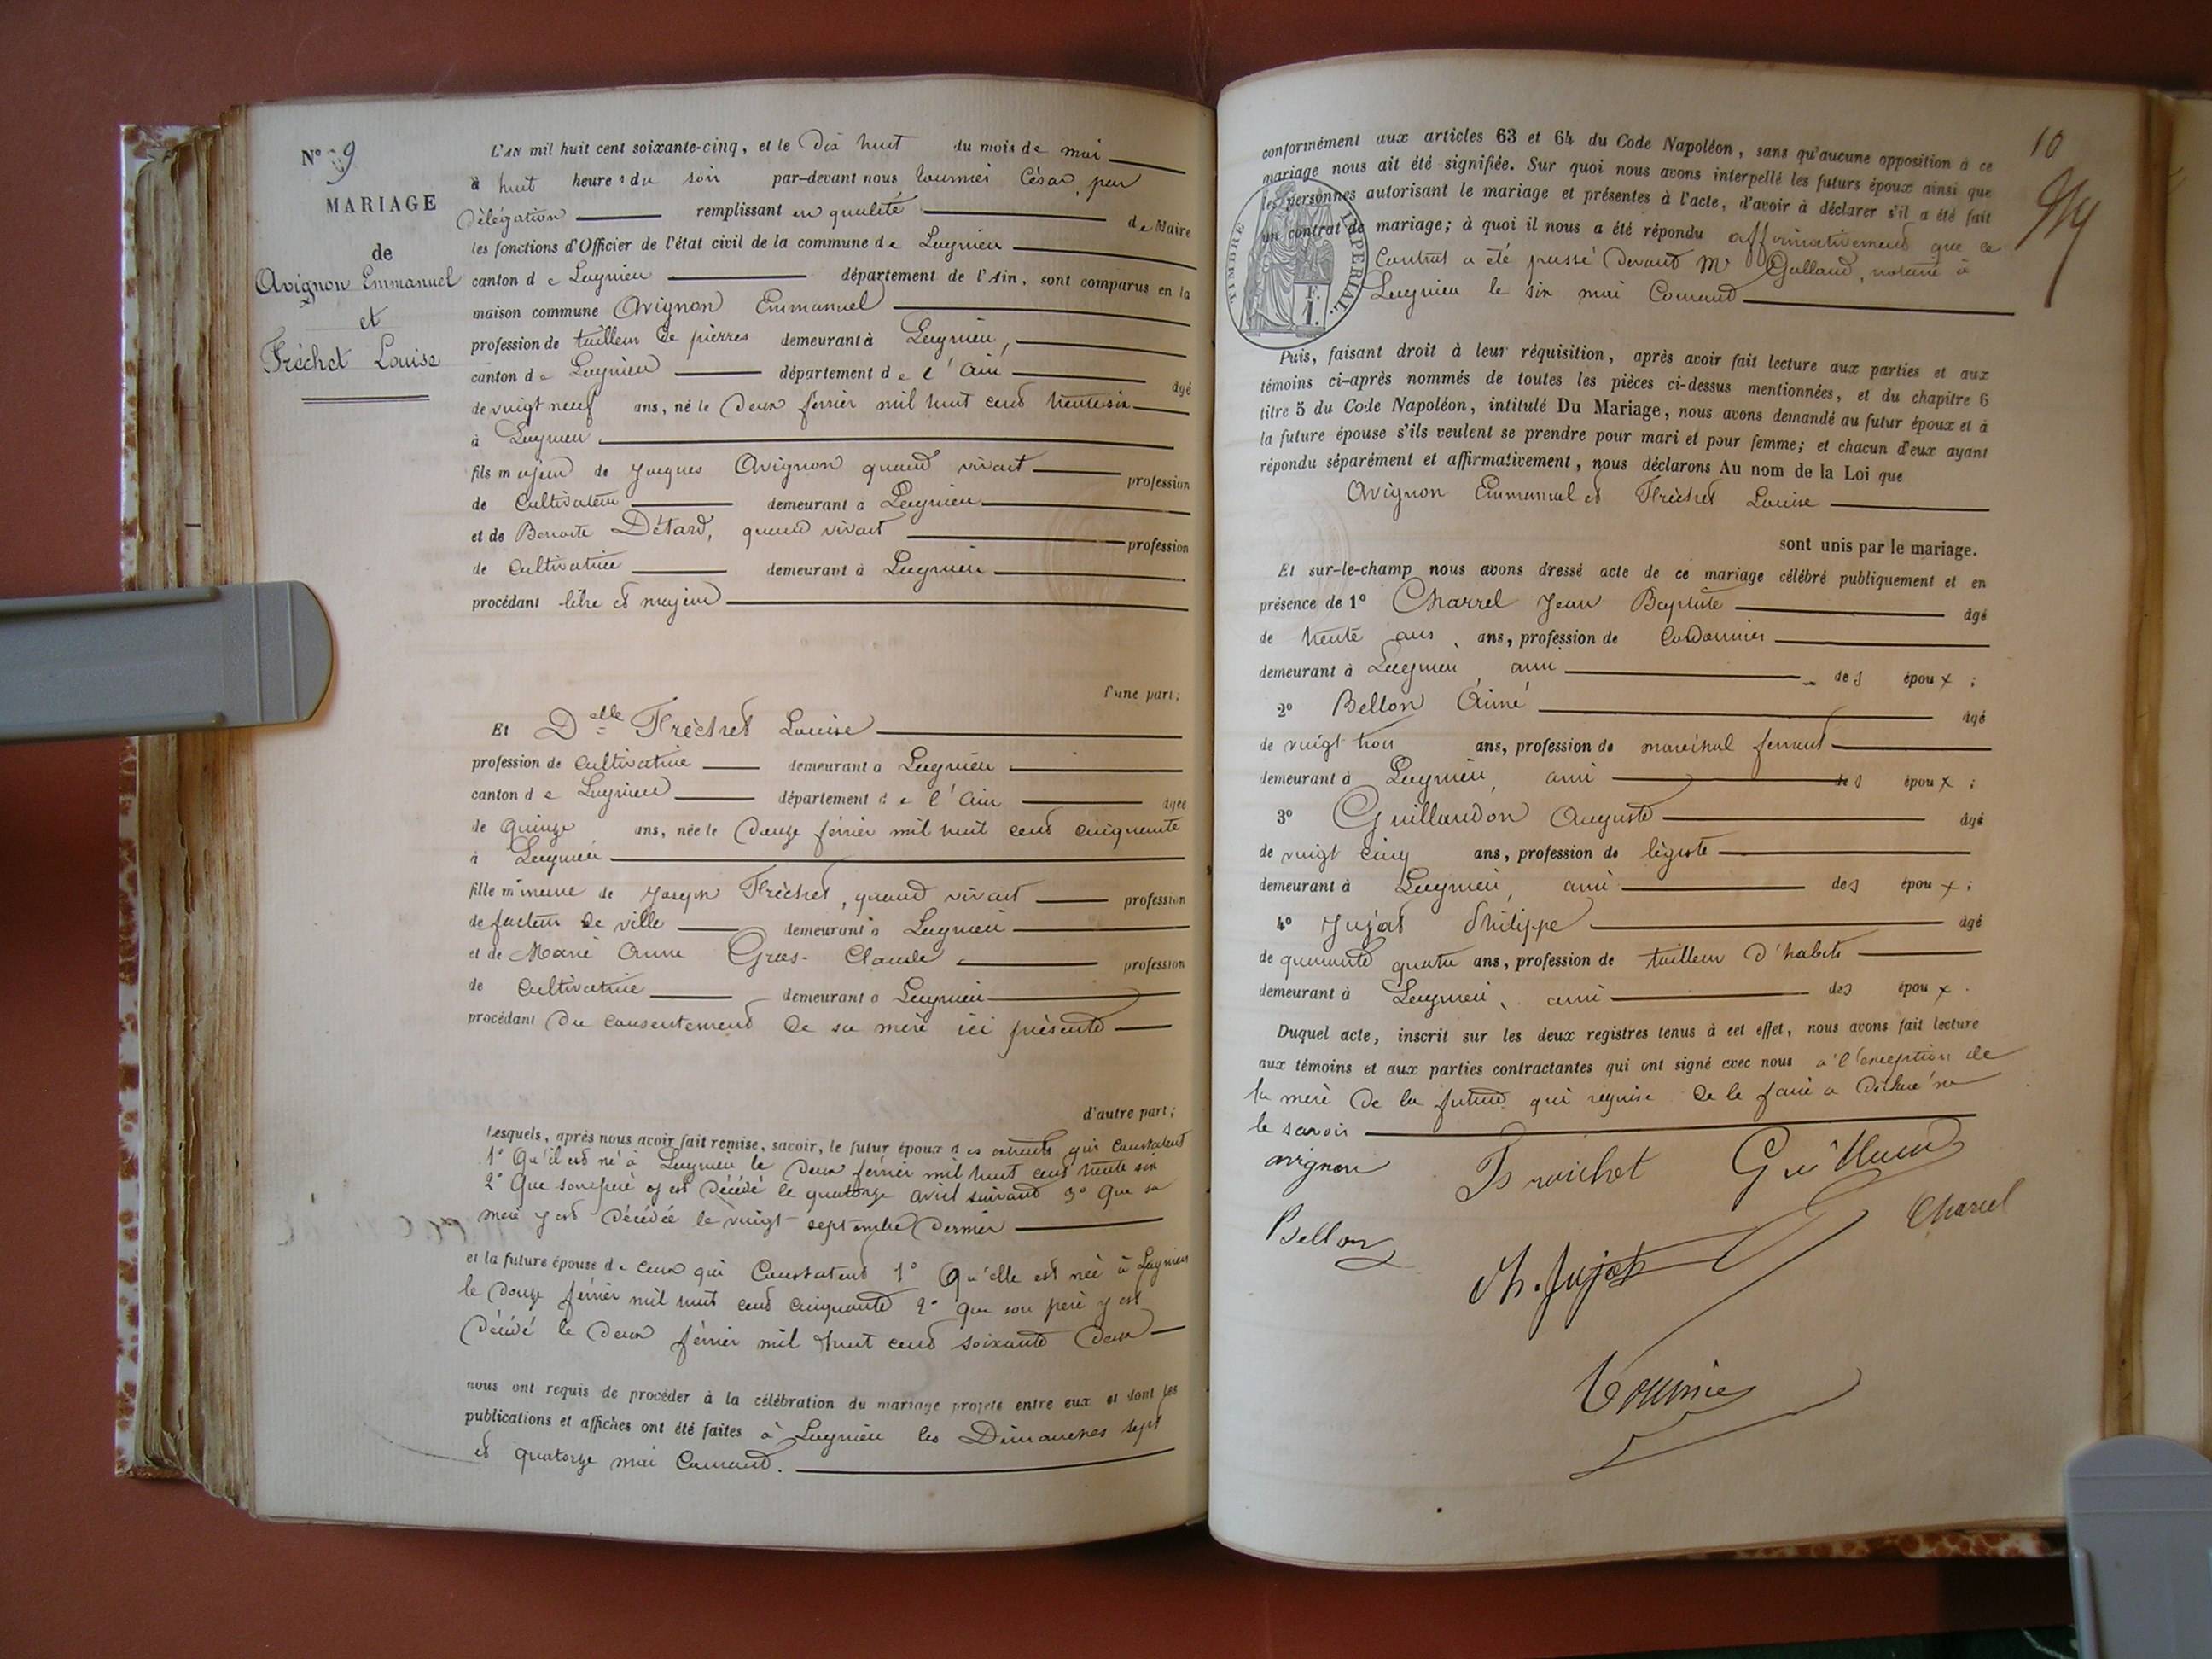 N° 9
MARIAGE
de
Avignon Emmanuel
et
Fréchet Louise
L'AN mil huit cent soixante-cinq, et le Dix huit du mois de mai
à huit heures du soir par-devant nous Tournier César, par
Délégation remplissant en qualité de Maire
les fonctions d'Officier de l'état civil de la commune de Lagnieu
canton de Lagnieu département de l'Ain, sont comparus en la
maison commune Avignon Emmanuel
profession de tailleur de pierres demeurant à Lagnieu,
canton de Lagnieu département de l'Ain âgé
de vingt neuf ans, né le Deux février mil huit cent trente six
à Lagnieu
fils majeur de Jacques Avignon quand vivait profession
de Cultivateur demeurant à Lagnieu
et de Benoite Détard, quand vivait profession
de Cultivatrice demeurant à Lagnieu
procédant libre et majeur
d'une part;
Et Delle Fréchet Louise
profession de Cultivatrice demeurant à Lagnieu
canton de Lagnieu département de l'Ain âgée
de Quinze ans, née le Douze février mil huit cent cinquante
à Lagnieu
fille mineure de Joseph Fréchet, quand vivait profession
de facteur de ville demeurant à Lagnieu
et de Marie Anne Gros-Claude profession
de Cultivatrice demeurant à Lagnieu
procédant Du consentement de sa mère ici présente
d'autre part;
Lesquels, après nous avoir fait remise, savoir, le futur époux des extraits qui constatent
1° Qu'il est né à Lagnieu le Deux février mil huit cent trente six
2° Que son père y est Décédé le quatorze avril suivant 3° Que sa
mère y est Décédée le vingt septembre Dernier
et la future épouse de ceux qui Constatent 1° Qu'elle est née à Lagnieu
le Douze février mil huit cent cinquante 2° que son père y est
Décédé le Deux février mil huit cent soixante Deux
nous ont requis de procéder à la célébration du mariage projeté entre eux et dont les
publications et affiches ont été faites à Lagnieu les Dimanches sept
et quatorze mai Courant.
10
conformément aux articles 63 et 64 du Code Napoléon, sans qu'aucune opposition à ce
mariage nous ait été signifiée. Sur quoi nous avons interpellé les futurs époux ainsi que
les personnes autorisant le mariage et présentes à l'acte, d'avoir à déclarer s'il a été fait
un contrat de mariage; à quoi il nous a été répondu affirmativement que ce
Contrat a été passé Devant Me Galland, notaire à
Lagnieu le six mai Courant
TIMBRE IMPÉRIAL.
F.
1.
Puis, faisant droit à leur réquisition, après avoir fait lecture aux parties et aux
témoins ci-après nommés de toutes les pièces ci-dessus mentionnées, et du chapitre 6
titre 5 du Code Napoléon, intitulé Du Mariage, nous avons demandé au futur époux et à
la future épouse s'ils veulent se prendre pour mari et pour femme; et chacun d'eux ayant
répondu séparément et affirmativement, nous déclarons Au nom de la Loi que
Avignon Emmanuel et Fréchet Louise
sont unis par le mariage.
Et sur-le-champ nous avons dressé acte de ce mariage célébré publiquement et en
présence de 1° Charrel Jean Baptiste âgé
de trente ans, ans, profession de Cordonnier
demeurant à Lagnieu ami des époux;
2° Bellon Aimé âgé
de vingt trois ans, profession de maréchal ferrant
demeurant à Lagnieu, ami des époux;
3° Guillaudon Auguste âgé
de vingt cinq ans, profession de légiste
demeurant à Lagnieu, ami des époux;
4° Jujat Philippe âgé
de quarante quatre ans, profession de tailleur d'habits
demeurant à Lagnieu, ami des époux.
Duquel acte, inscrit sur les deux registres tenus à cet effet, nous avons fait lecture
aux témoins et aux parties contractantes qui ont signé avec nous à l'exception de
la mère de la future qui requise de le faire a déclaré ne
le savoir
avignon
Bellon
Ph. Jujat
Charrel
Tournier